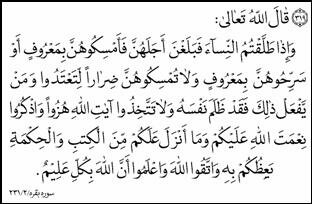 (٣١٩) قَالَ اللهُ تَعَالىٰ:
وَإِذَا طَلَّقْتُمُ النِّسَآءَ فَبَلَغْنَ أَجَلَهُنَّ فَأَمْسِكُوهُنَّ بِمَعْرُوفٍ أَوْ
سَرِّحُوهُنَّ بِمَعْرُوفٍ وَلَا تُمْسِكُوهُنَّ ضِرَاراً لِتَعْتَدُوا وَمَنْ
يَفْعَلْ ذٰلِكَ فَقَدْ ظَلَمَ نَفْسَهُ وَلَا تَتَّخِذُوا آيٰتِ اللهِ هُزُواً وَاذْكُرُوا
نِعْمَتَ اللهِ عَلَيْكُمْ وَمَا أَنْزَلَ عَلَيْكُمْ مِنَ الْكِتٰبِ وَالْحِكْمَةِ
يَعِظُكُمْ بِهِ وَاتَّقُوا اللهَ وَاعْلَمُوا أَنَّ اللهَ بِكُلِّ عَلِيمٌ.
سوره بقره/٢٣١/٢